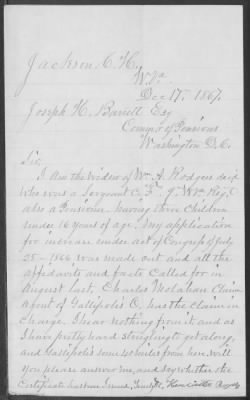 Jackson C. H.
W. Va
Dec 17th 1867.
Joseph H. Barrett Esq
Commr of Pensions
Washington D.C.
Sir,
I am the widow of Wm A. Rodgers decd
who was a Sergeant Co. 9th WVa Regt
also a Pensioner having three children
under 16 years of age. My application
for increase under act of Congress of July
25 - 1866 was made out and all the
affidavits and facts called for in
August last. Charles McLahan Claim
agent of Gallipolis O, has the claim in
charge. I hear nothing from it and as
I have pretty hard struggling to get along,
and Gallipolis some 40 miles from here. Will
you please answer me, and say whether the
Certificate has been Issued,